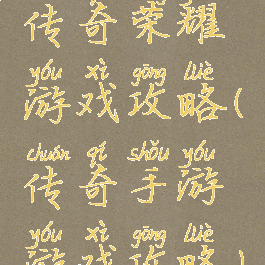 传奇荣耀
yóu xì gōng lüè
游戏攻略(
chuán qí shǒu yóu
传奇手游
yóu xì gōng lüè
游戏攻略)